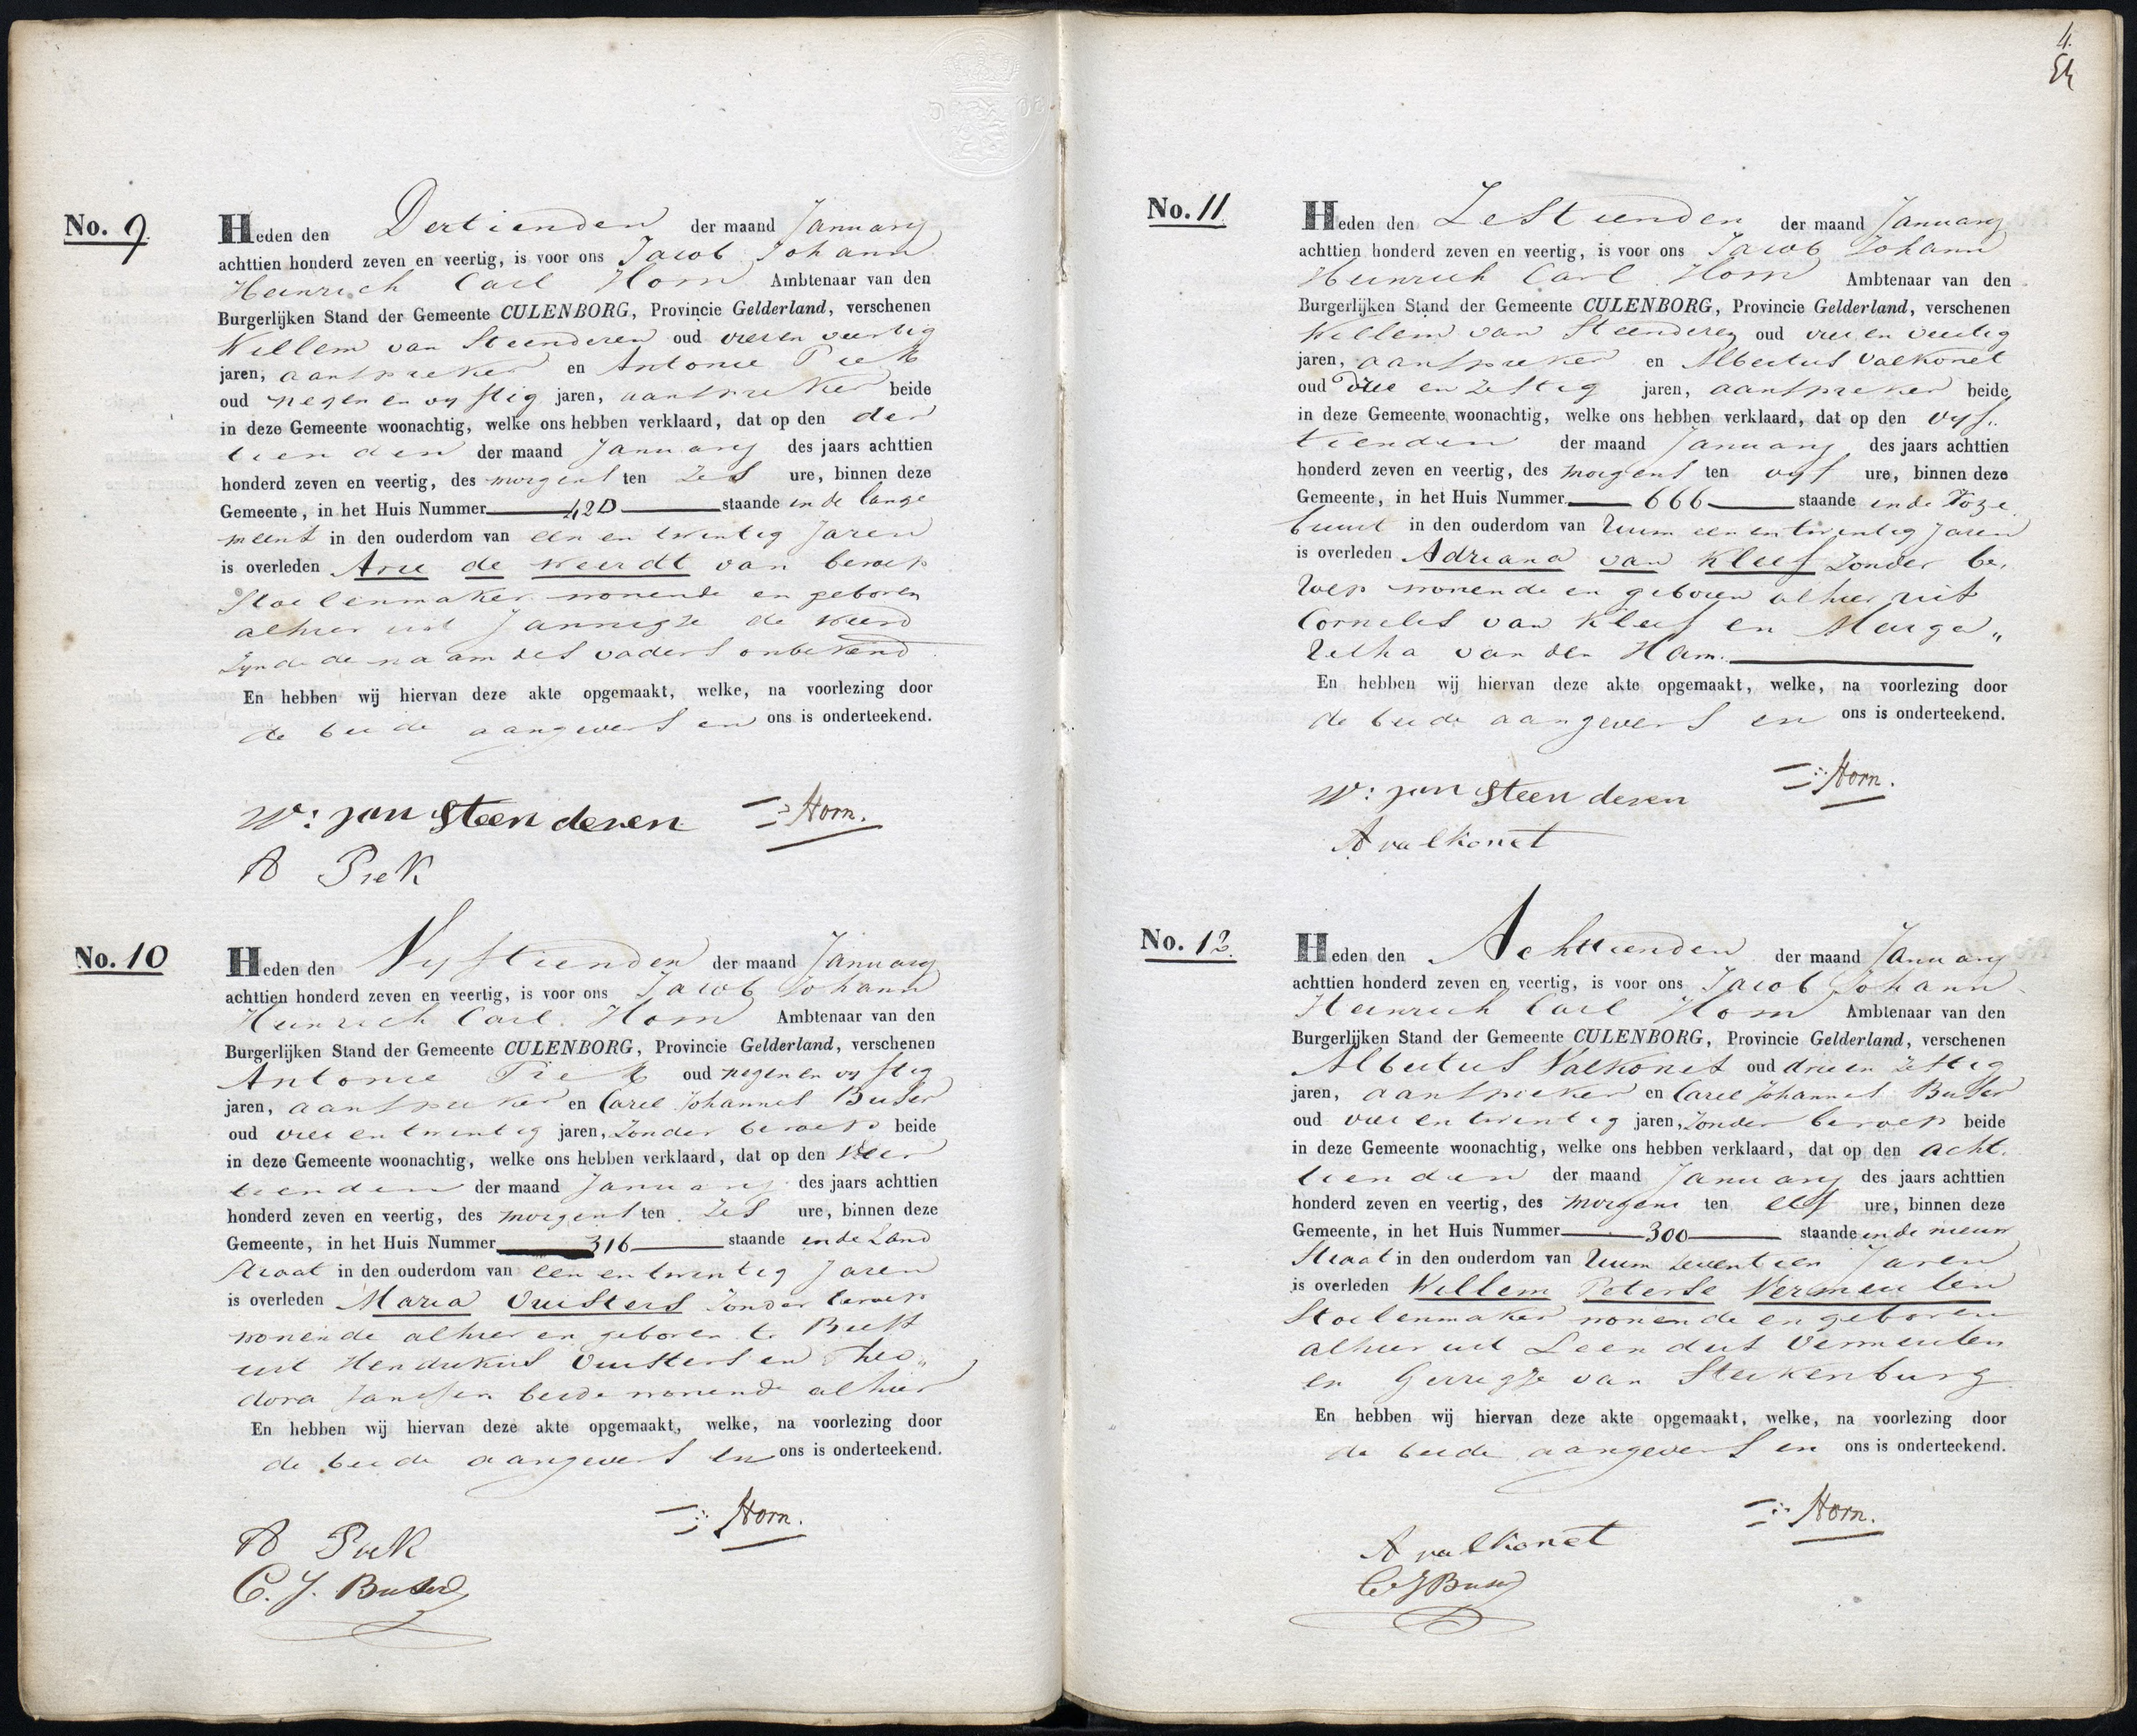 No. 9.
Heden den Dertienden der maand January
achttien honderd zeven en veertig, is voor ons Jacob Johann
Heinrich Carl Horn Ambtenaar van den
Burgerlijken Stand der Gemeente CULENBORG, Provincie Gelderland, verschenen
Willem van Steenderen oud vier en veertig
jaren, aanspreker en Antonie Piek
oud negen en vyftig jaren, aanspreker beide
in deze Gemeente woonachtig, welke ons hebben verklaard, dat op den der
tienden der maand January des jaars achttien
honderd zeven en veertig, des morgens ten zes ure, binnen deze
Gemeente, in het Huis Nummer 42D staande in de lange
meent in den ouderdom van een en twintig Jaren
is overleden Arie de Weerdt van beroep
Stoelenmaker wonende en geboren
alhier uit Jannigje de Weerd
Zynde de naam des vaders onbekend
En hebben wij hiervan deze akte opgemaakt, welke, na voorlezing door
de beide aangevers en ons is onderteekend.
W: van Steenderen Horn.
A Piek
No. 10
Heden den Vyftienden der maand January
achttien honderd zeven en veertig, is voor ons Jacob Johann
Heinrich Carl Horn Ambtenaar van den
Burgerlijken Stand der Gemeente CULENBORG, Provincie Gelderland, verschenen
Antonie Piek oud negen en vyftig
jaren, aanspreker en Carel Johannes Buser
oud vier en twintig jaren, zonder beroep beide
in deze Gemeente woonachtig, welke ons hebben verklaard, dat op den Veer
tienden der maand January des jaars achttien
honderd zeven en veertig, des morgens ten zes ure, binnen deze
Gemeente, in het Huis Nummer 316 staande in de Zand
straat in den ouderdom van een en twintig Jaren
is overleden Maria zonder beroep
wonende alhier en geboren te
uit Hendrikus en Theo„
dora Janssen beide wonende alhier
En hebben wij hiervan deze akte opgemaakt, welke, na voorlezing door
de beide aangevers en ons is onderteekend.
A Piek Horn.
C. J. Buser
4.
No. 11
Heden den Zestienden der maand January
achttien honderd zeven en veertig, is voor ons Jacob Johann
Heinrich Carl Horn Ambtenaar van den
Burgerlijken Stand der Gemeente CULENBORG, Provincie Gelderland, verschenen
Willem van Steenderen oud vier en veertig
jaren, aanspreker en Albertus Valkonet
oud drie en zestig jaren, aanspreker beide
in deze Gemeente woonachtig, welke ons hebben verklaard, dat op den vyf„
tienden der maand January des jaars achttien
honderd zeven en veertig, des morgens ten vyf ure, binnen deze
Gemeente, in het Huis Nummer 666 staande in de
buurt in den ouderdom van Ruim een en twintig Jaren
is overleden Adriana van Kleef Zonder be„
roep wonende en geboren alhier uit
Cornelis van Kleef en Marga„
retha van den Ham.
En hebben wij hiervan deze akte opgemaakt, welke, na voorlezing door
de beide aangevers en ons is onderteekend.
W: van Steenderen Horn.
A valkonet
No. 12.
Heden den Achttienden der maand January
achttien honderd zeven en veertig, is voor ons Jacob Johann
Heinrich Carl Horn Ambtenaar van den
Burgerlijken Stand der Gemeente CULENBORG, Provincie Gelderland, verschenen
Albertus Valkonet oud drie en zestig
jaren, aanspreker en Carel Johannes Buser
oud vier en twintig jaren, zonder beroep beide
in deze Gemeente woonachtig, welke ons hebben verklaard, dat op den acht„
tienden der maand January des jaars achttien
honderd zeven en veertig, des morgens ten elf ure, binnen deze
Gemeente, in het Huis Nummer 300 staande in de nieuw
straat in den ouderdom van Ruim zeventien Jaren
is overleden Willem Peterse Vermeulen
Stoelenmaker wonende en geboren
alhier uit Leendert Vermeulen
en Gerrigje van Sterkenburg
En hebben wij hiervan deze akte opgemaakt, welke, na voorlezing door
de beide aangevers en ons is onderteekend.
A valkonet Horn.
C J Buser